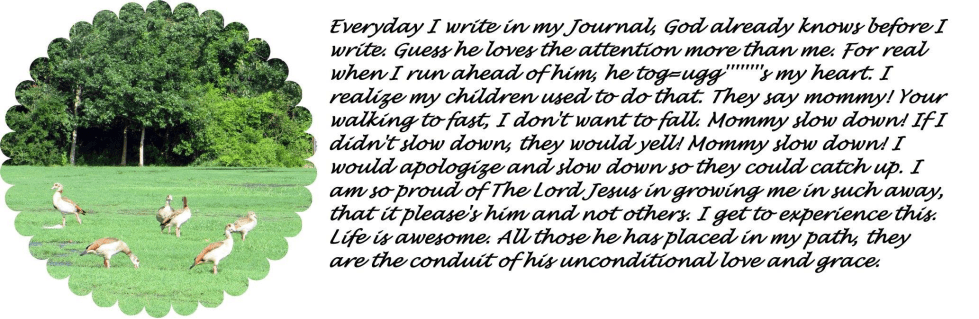 Everyday I write in my Journal, God already knows before I
write. Guess he loves the attention more than me. For real
when I run ahead of him, he tog=ugg''''''''s my heart. I
realize my children used to do that. They say mommy! Your
walking to fast, I don't want to fall. Mommy slow down! If I
didn't slow down, they would yell! Mommy slow down! I
would apologize and slow down so they could catch up. I
am so proud of The Lord Jesus in growing me in such away,
that it please's him and not others. I get to experience this.
Life is awesome. All those he has placed in my path, they
are the conduit of his unconditional love and grace.